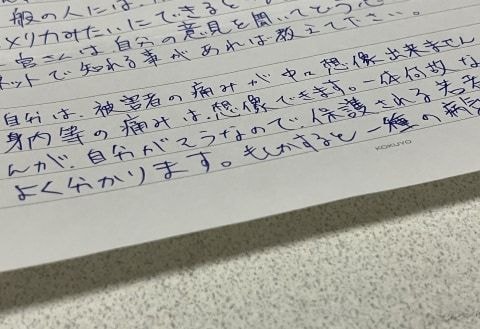 般の人には、
メリカみたいにできると
皆さんは自分の意見を聞いてどう
ネットで知れる事があれば教えて下さい。
自分は、被害者の痛みが中々想像出来ません
身内等の痛みは、想像できます。一体何故な
んが、自分がそうなので保護される
よく分かります。もしかすると一種の病気
KOKUYO